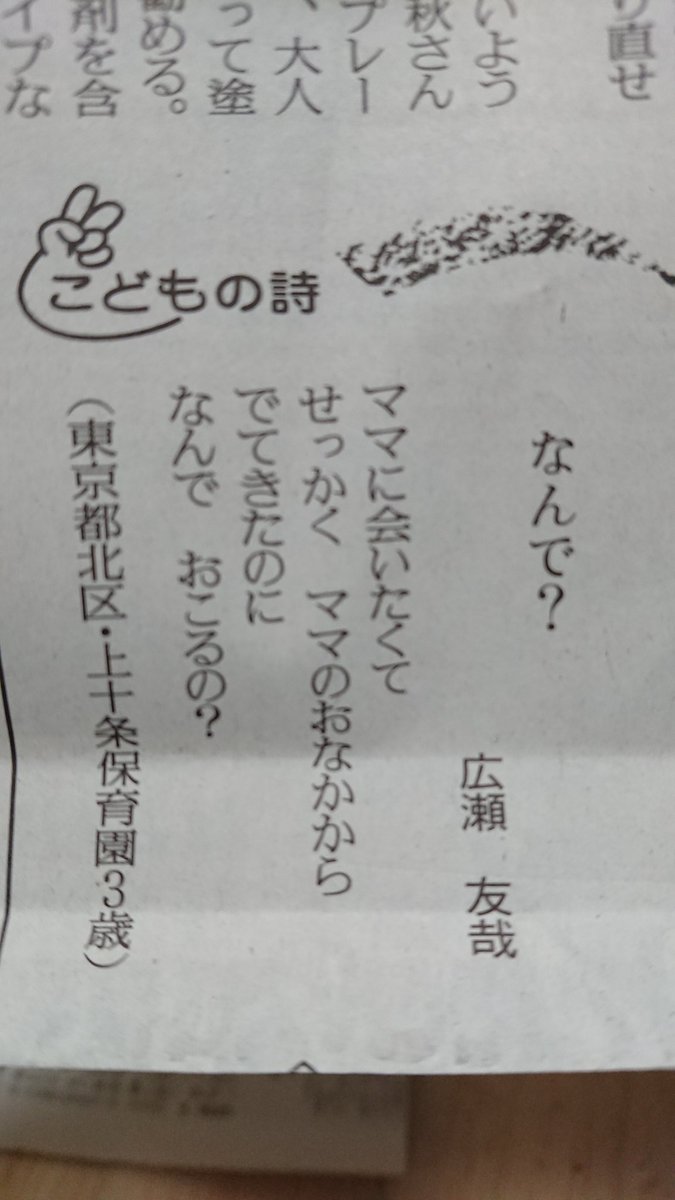 り直せ
いよう
秋さん
プレー
、大人
って塗
勧める。
剤を含
イプな
こどもの詩
なんで?
広瀬 友哉
ママに会いたくて
せっかく ママのおなかから
でてきたのに
なんで おこるの?
(東京都北区・上十条保育園3歳)